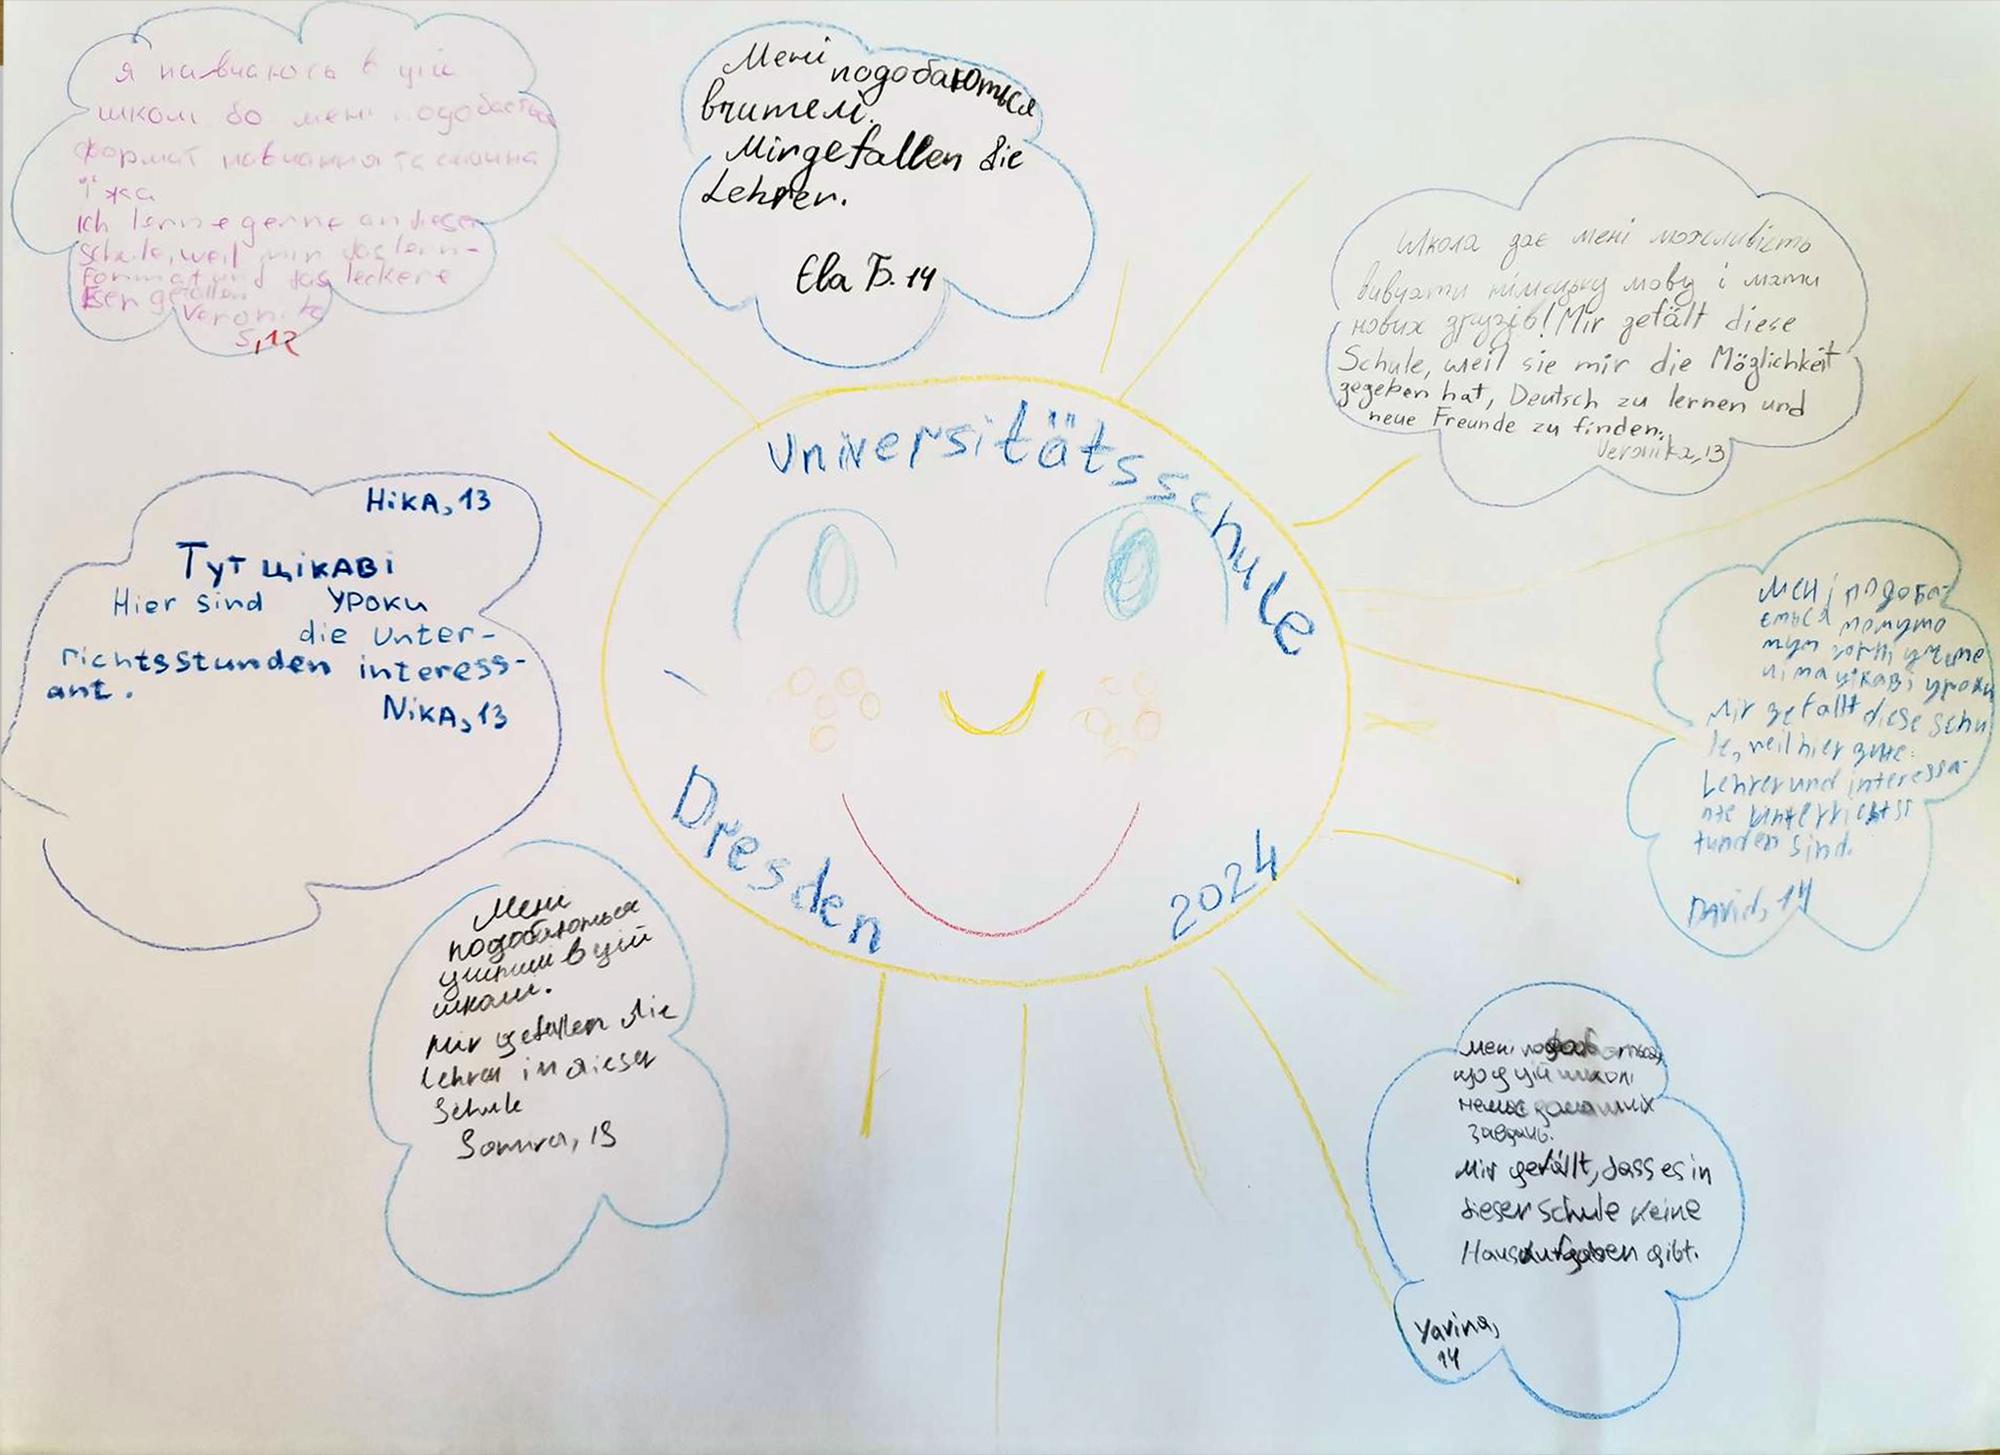 я навчаюсь в цій
школі бо мені подобається
формат навчання та смачна
їжа
Ich lerne gerne an dieser
Schule, weil mir das lern-
format und das leckere
Esen gefallen
Veronika
S, 12
Мені подобаються
вчителі.
Mir gefallen die
Lehrer.
Ева Б. 14
Школа дає мені можливість
вивчати німецьку мову і мати
нових друзів! Mir gefält diese
Schule, weil sie mir die Möglichkeit
gegeben hat, Deutsch zu lernen und
neue Freunde zu finden.
Veronika, 13
Universitätsschule
Dresden
2024
Ніка, 13
Тут цікаві
Hier sind уроки
die Unter-
richtsstunden interess-
ant.
Nika, 13
Мені подоба-
ється тому що
тут гарні учите
лі та цікаві уроки
Mir gefallt diese Schu
le, weil hier gute
Lehrer und interessa-
nte Unterrichtss
tunden sind.
David, 14
Мені
подобаються
учителі в цій
школі.
Mir gefallen die
Lehrer in dieser
Schule
13
Мені подобається,
що у цій школі
немає домашніх
завдань.
Mir gefällt, dass es in
dieser Schule keine
Hausaufgaben gibt.
Yarina,
14